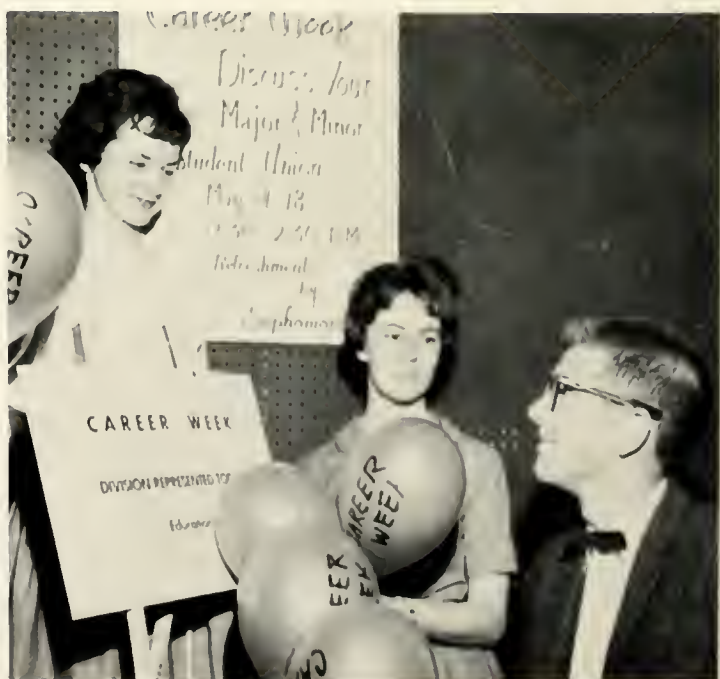 Career Week
Discuss Your
Major & Minor
Student Union
May 18
P.M.
Refreshment
by
Sophomores
CAREER WEEK
DIVISION REPRESENTED TODAY
Education
CAREER
CAREER
WEEK
EER
EK
CA